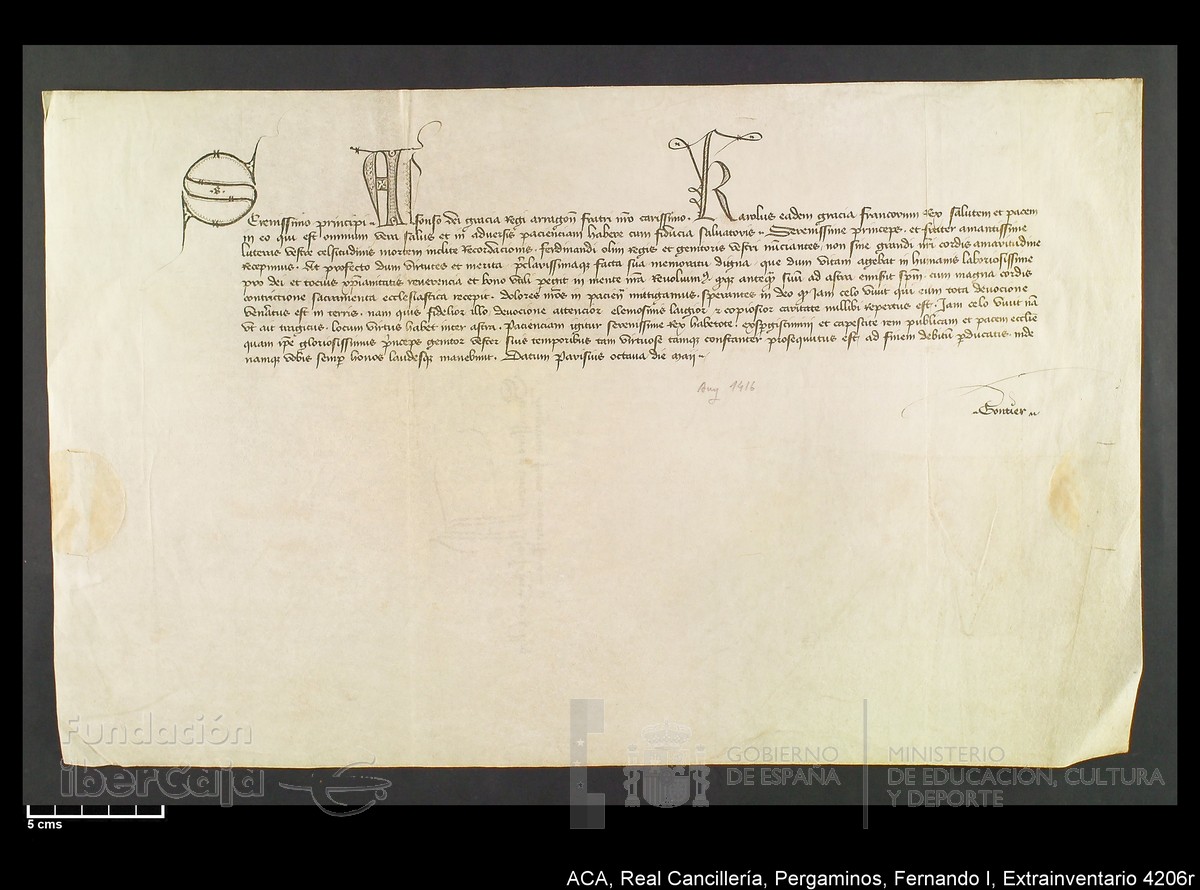 Serenissimo principi Alfonso dei gracia Regi arragon̄ fratri nr̄o carissimo. Karolus eadem gracia francorum Rex salutem et pacem
in eo qui est omnium vera salus et in aduersis pacienciam habere cum fiducia saluatoris. Serenissime princeps. et frater amantissime
litteras vestre celsitudinis mortem inclite Recordacionis. ferdinandi olim Regis et genitoris vestri nunciantes non sine grandi nr̄i cordis amaritudine
Recepimus. profecto dum virtutes et merita preclarissimaque facta sua memoratu digna. que dum vitam agebat in humanis laboriosissime
pro dei et tocius xp̄ianitatis reuerencia et bono vtili peregit in mente nr̄a Reuoluimus. quod anteq̄ suū ad astra emisit sp̄m. cum magna cordis
contrictione sacramenta ecclesiastica recepit. dolores nr̄os in pacien̄ mitigamus. sperantes in deo q̄ iam celo viuit qui eum tota deuocione
veneratus est in terris. nam quis fidelior illo deuocione attencior elemosinis largior & copiosior caritate nullibi repertus est. Iam celo viuit nā
vt ait tragicus. locum virtus habet inter astra. Pacienciam igitur serenissime Rex habetote. expergiscimini et capescite rem publicam et pacem ecclesie
quam ip̄e gloriosissimus princeps genitor vester suis temporibus tam virtuose tamque constanter prosequitus est ad finem debitū perducatis. inde
namque vobis semper honos laudesque manebunt. Datum parisius octaua die maii
Aug 1416
Gontier
Fundación
iberCaja
GOBIERNO
DE ESPAÑA
MINISTERIO
DE EDUCACIÓN, CULTURA
Y DEPORTE
5 cms
ACA, Real Cancillería, Pergaminos, Fernando I, Extrainventario 4206r